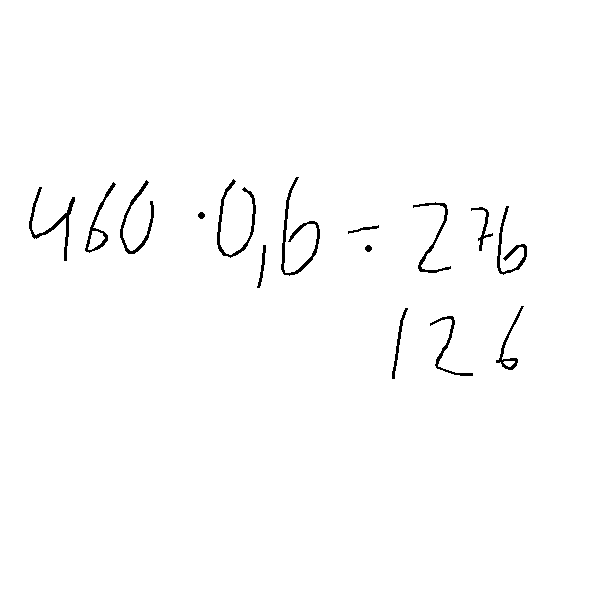 460 · 0,6 ÷ 276
126